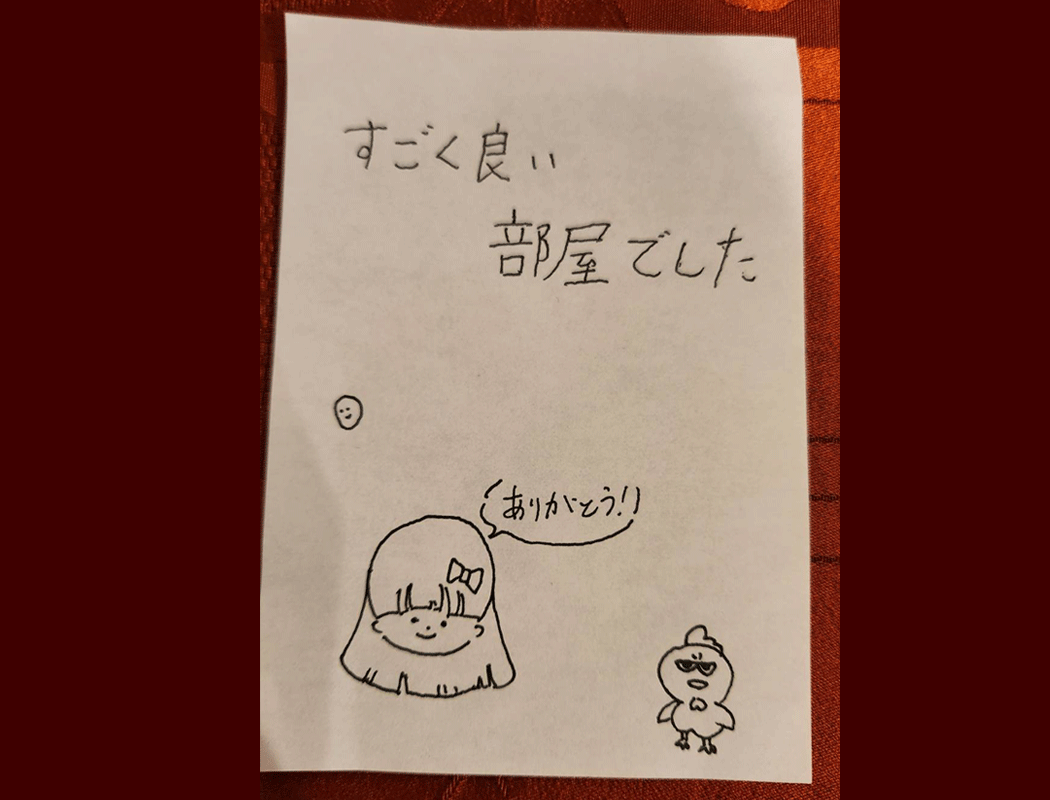 すごく良い
部屋でした
ありがとう!